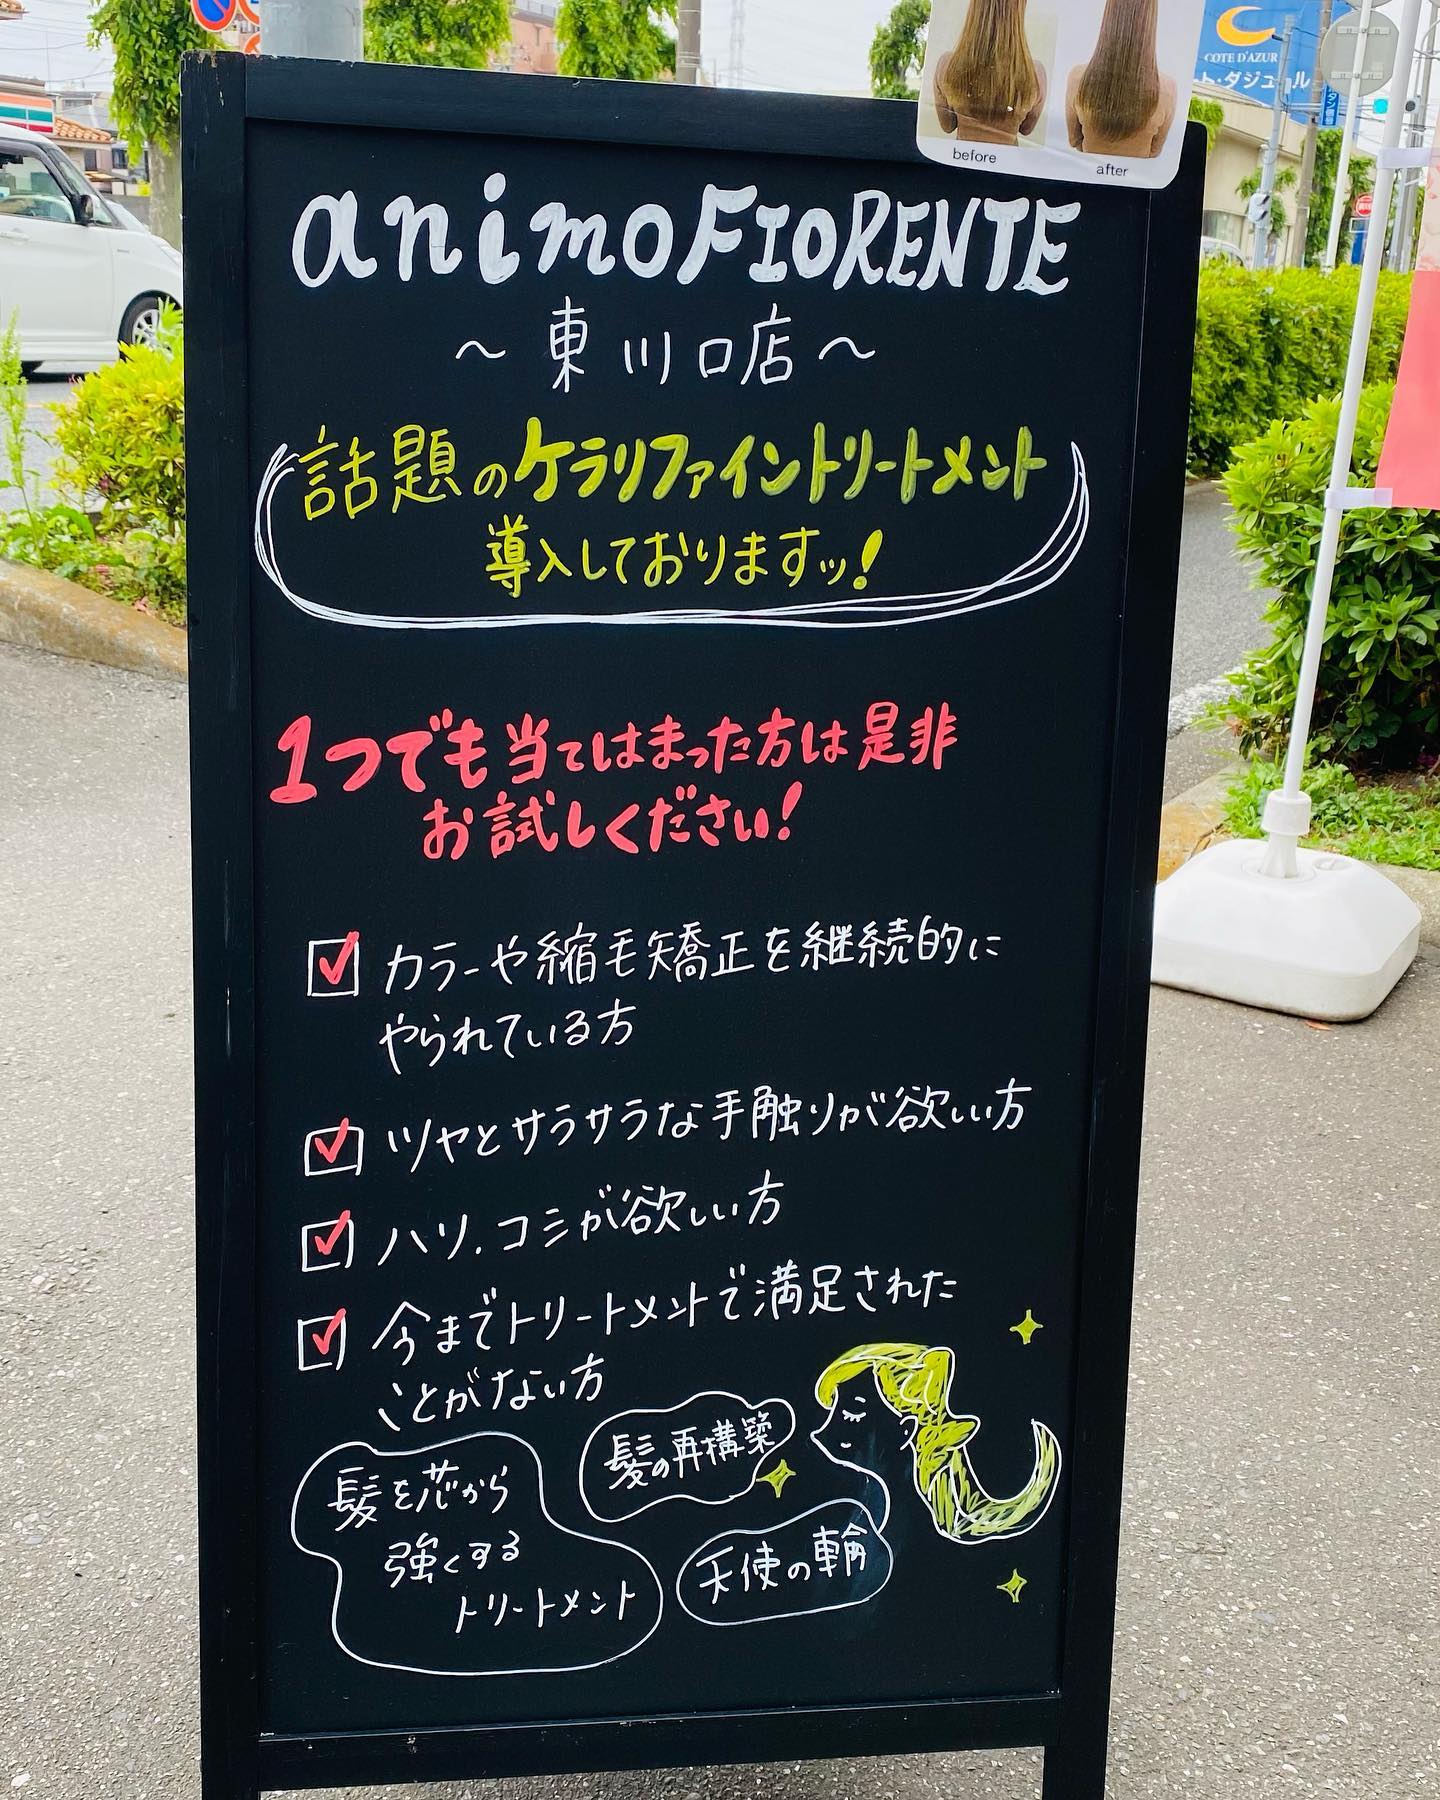 before
after
COTE D'AZUR
ート・ダジュール
animo FIORENTE
～東川口店～
話題のケラリファイントリートメント
導入しておりますッ!
1つでも当てはまった方は是非
お試しください!
カラーや縮毛矯正を継続的に
やられている方
ツヤとサラサラな手触りが欲しい方
ハリ.コシが欲しい方
今までトリートメントで満足された
ことがない方
髪の再構築
髪を芯から
強くする
トリートメント
天使の輪